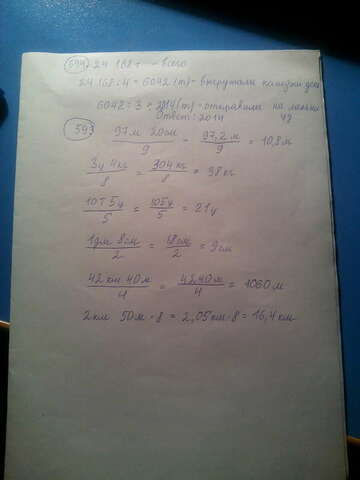 594) 24 168 т - всего
24 168:4 = 6042 (т) - выгружали каждый день
6042:3 = 2014 (т) - отправили на
Ответ: 2014
593
97м 20см/9 = 97,2м/9 = 10,8м
3ц 4кг/8 = 304кг/8 = 38кг
10т 5ц/5 = 105ц/5 = 21ц
1дм 8см/2 = 18см/2 = 9см
42км 40м/4 = 4240м/4 = 1060м
2км 50м·8 = 2,05км·8 = 16,4км